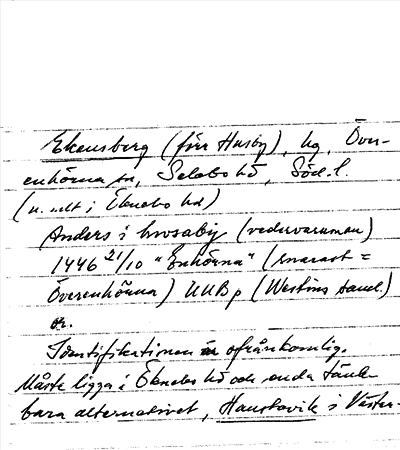 Ekensberg (förr Husby), hg, Över-
enhörna sn, Selebo hd, Söd. l.
(n. .. lt i Öknebo hd)
Anders i hwsaby (vederwaruman)
1446 21/10 "Enhörna" (snarast =
Överenhörna) UUB p (Westins saml.)
or.
Identifikationen är ofrånkomlig.
Måste ligga i Öknebo hd och enda tänk
bara alternativet, Hanstavik i Väster-